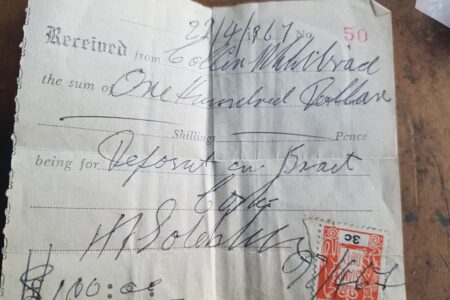 22/4/1967 No 50
Received from Collin Whitbread
the sum of One Hundred Dollars
Shillings Pence
being for Deposit on
3c
$100:00